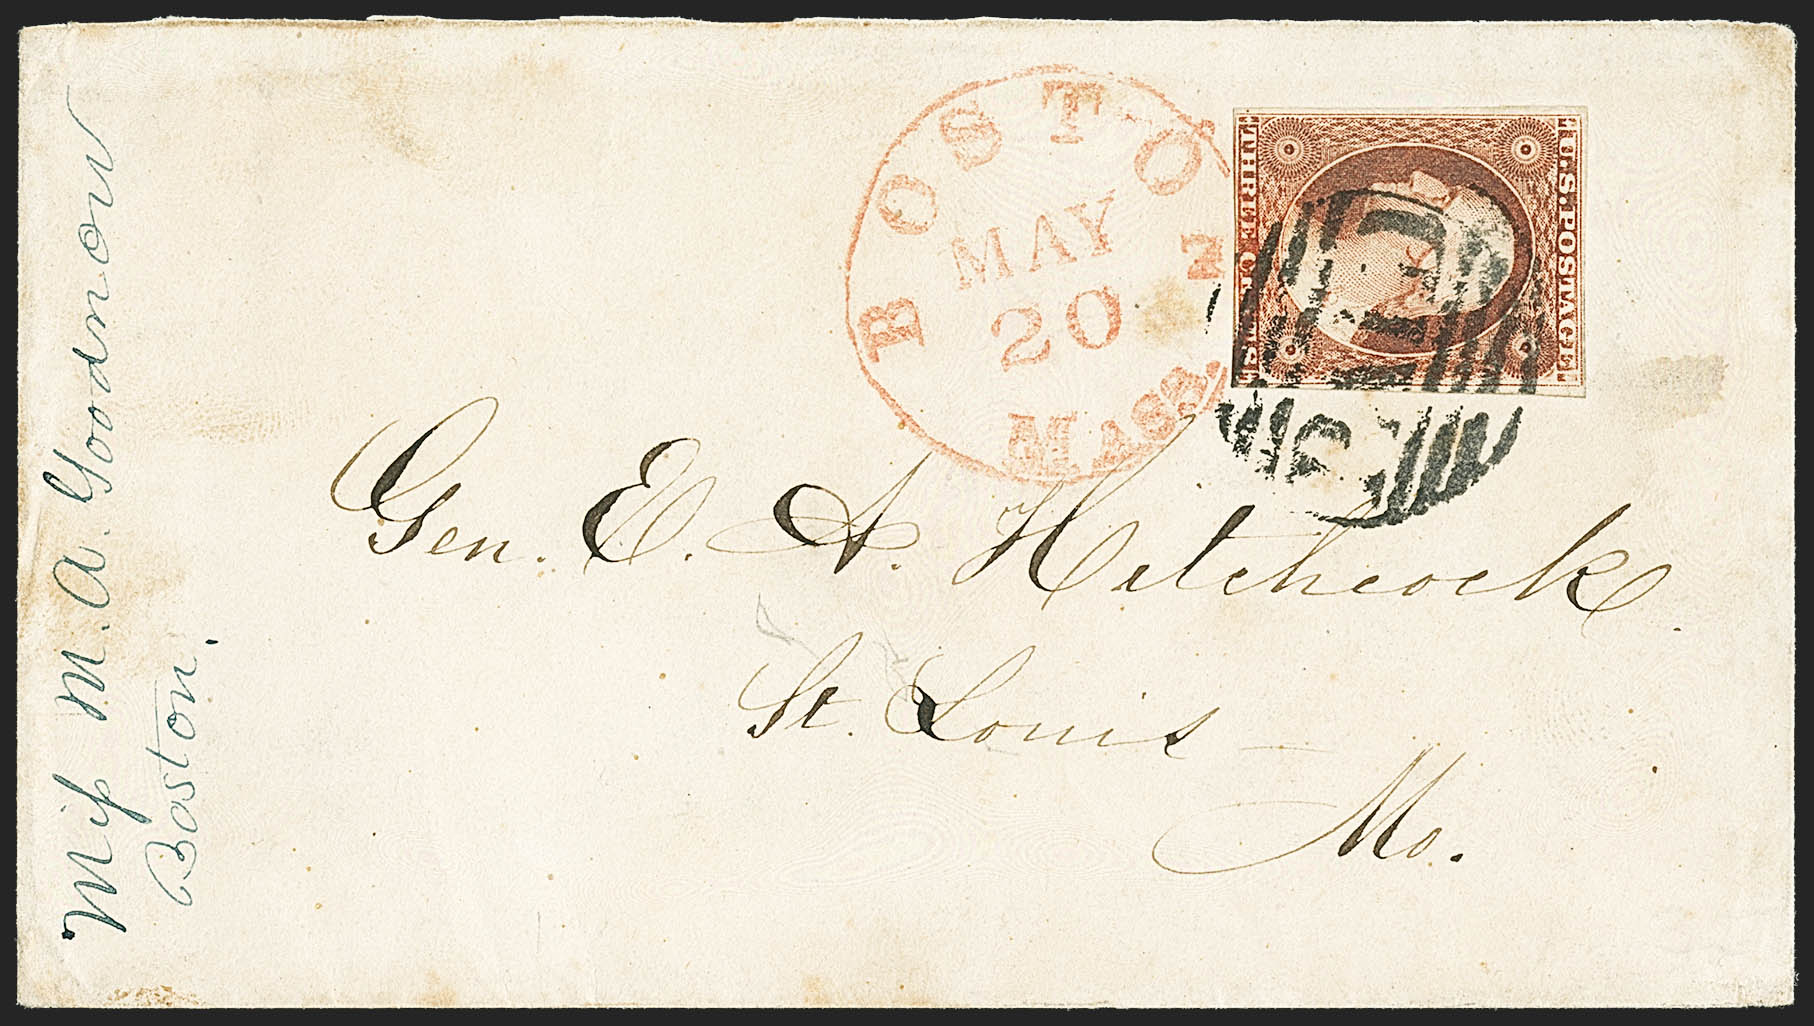 BOSTON
MAY
20
MASS.
U.S. POSTAGE
THREE CENTS
PAID
Gen. E. A. Hitchcock.
St. Louis
Mo.
Miss M. A. Goodnow
Boston.